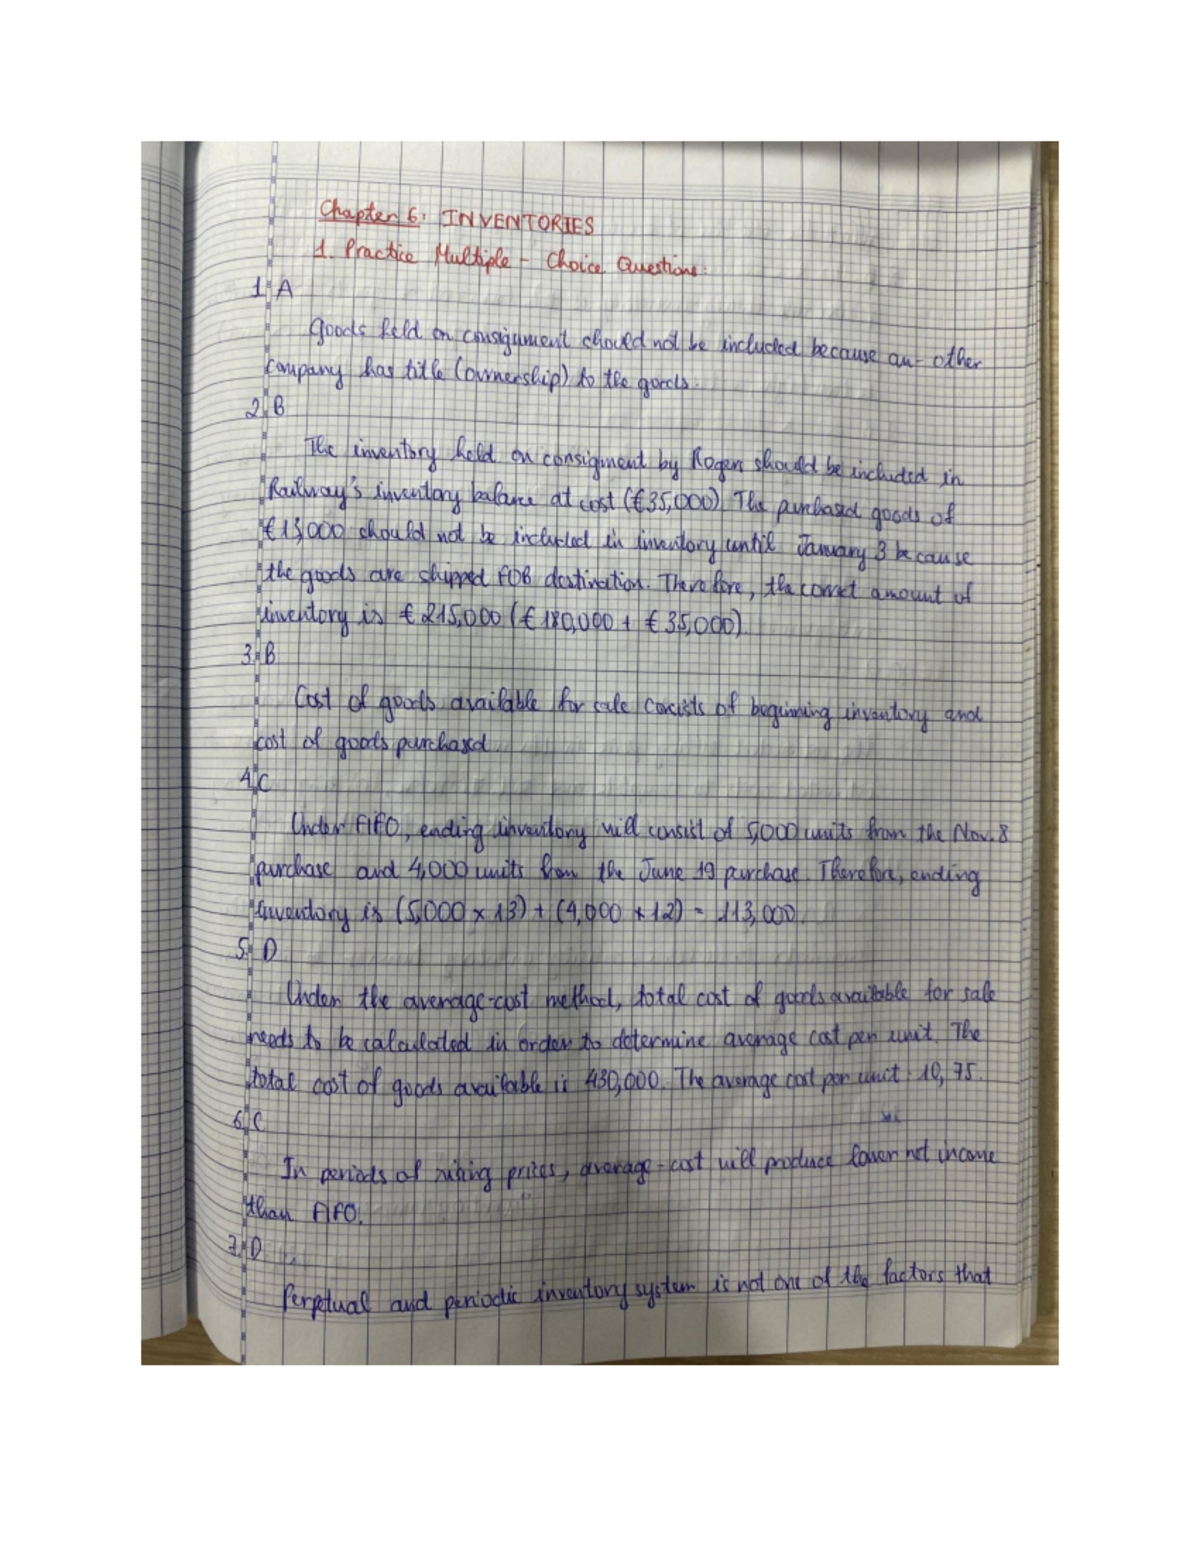 Chapter 6: INVENTORIES
1. Practice Multiple - Choice Questions:
1. A
Goods held on consignment should not be included because an- other
company has title (ownership) to the goods.
2. B
The inventory held on consigment by Rogers should be included in
Railway's inventory balance at cost (€35,000). The purchased goods of
€13,000 should not be included in inventory until January 3 because
the goods are shipped FOB destination. Therefore, the correct amount of
inventory is €215,000 (€180,000 + €35,000)
3. B
Cost of goods available for sale consists of beginning inventory and
cost of goods purchased
4. C
Under FIFO, ending inventory will consist of 5,000 units from the Nov. 8
purchase and 4,000 units from the June 19 purchase. Therefore, ending
inventory is (5,000 x 13) + (4,000 x 12) = 113,000.
5. D
Under the average-cost method, total cost of goods available for sale
needs to be calculated in order to determine average cost per unit. The
total cost of goods available is 430,000. The average cost per unit : 10,75.
6. C
In periods of rising prices, average-cost will produce lower net income
than FIFO.
7. D
Perpetual and periodic inventory system is not one of the factors that